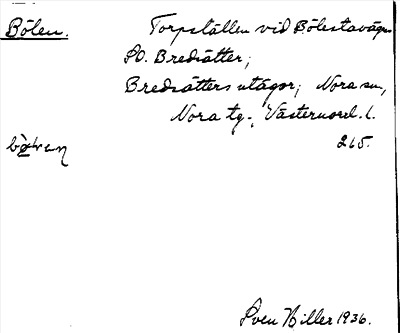 Bölen. Torpställen vid Bölestavägen
SO. Bredsätter;
Bredsätters utägor; Nora sn,
Nora tg., Västernorrl. l.
265.
Sven Hiller 1936.